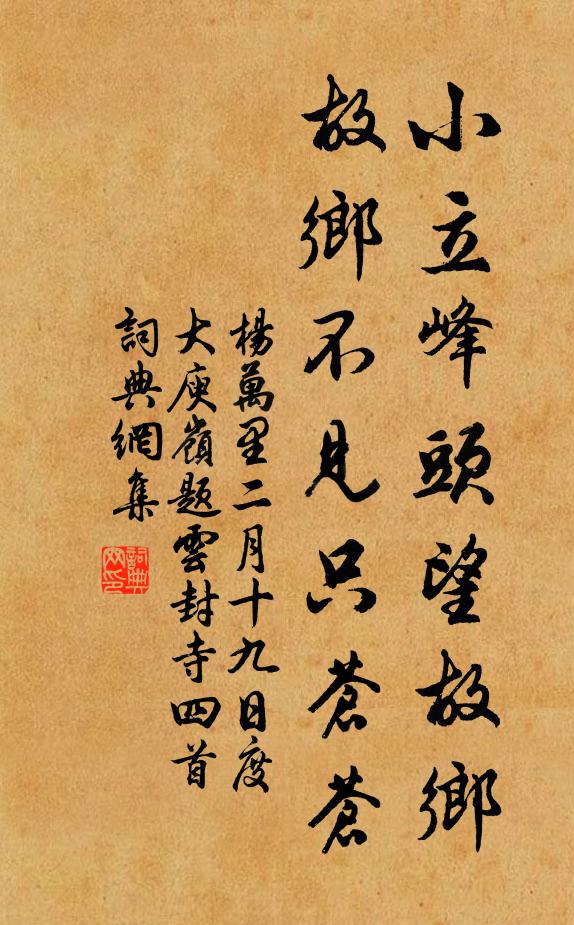 小立峰頭望故鄉
故鄉不見只蒼蒼
楊萬里二月十九日度
大庾嶺題雲封寺四首
詞典網集
詞典網印